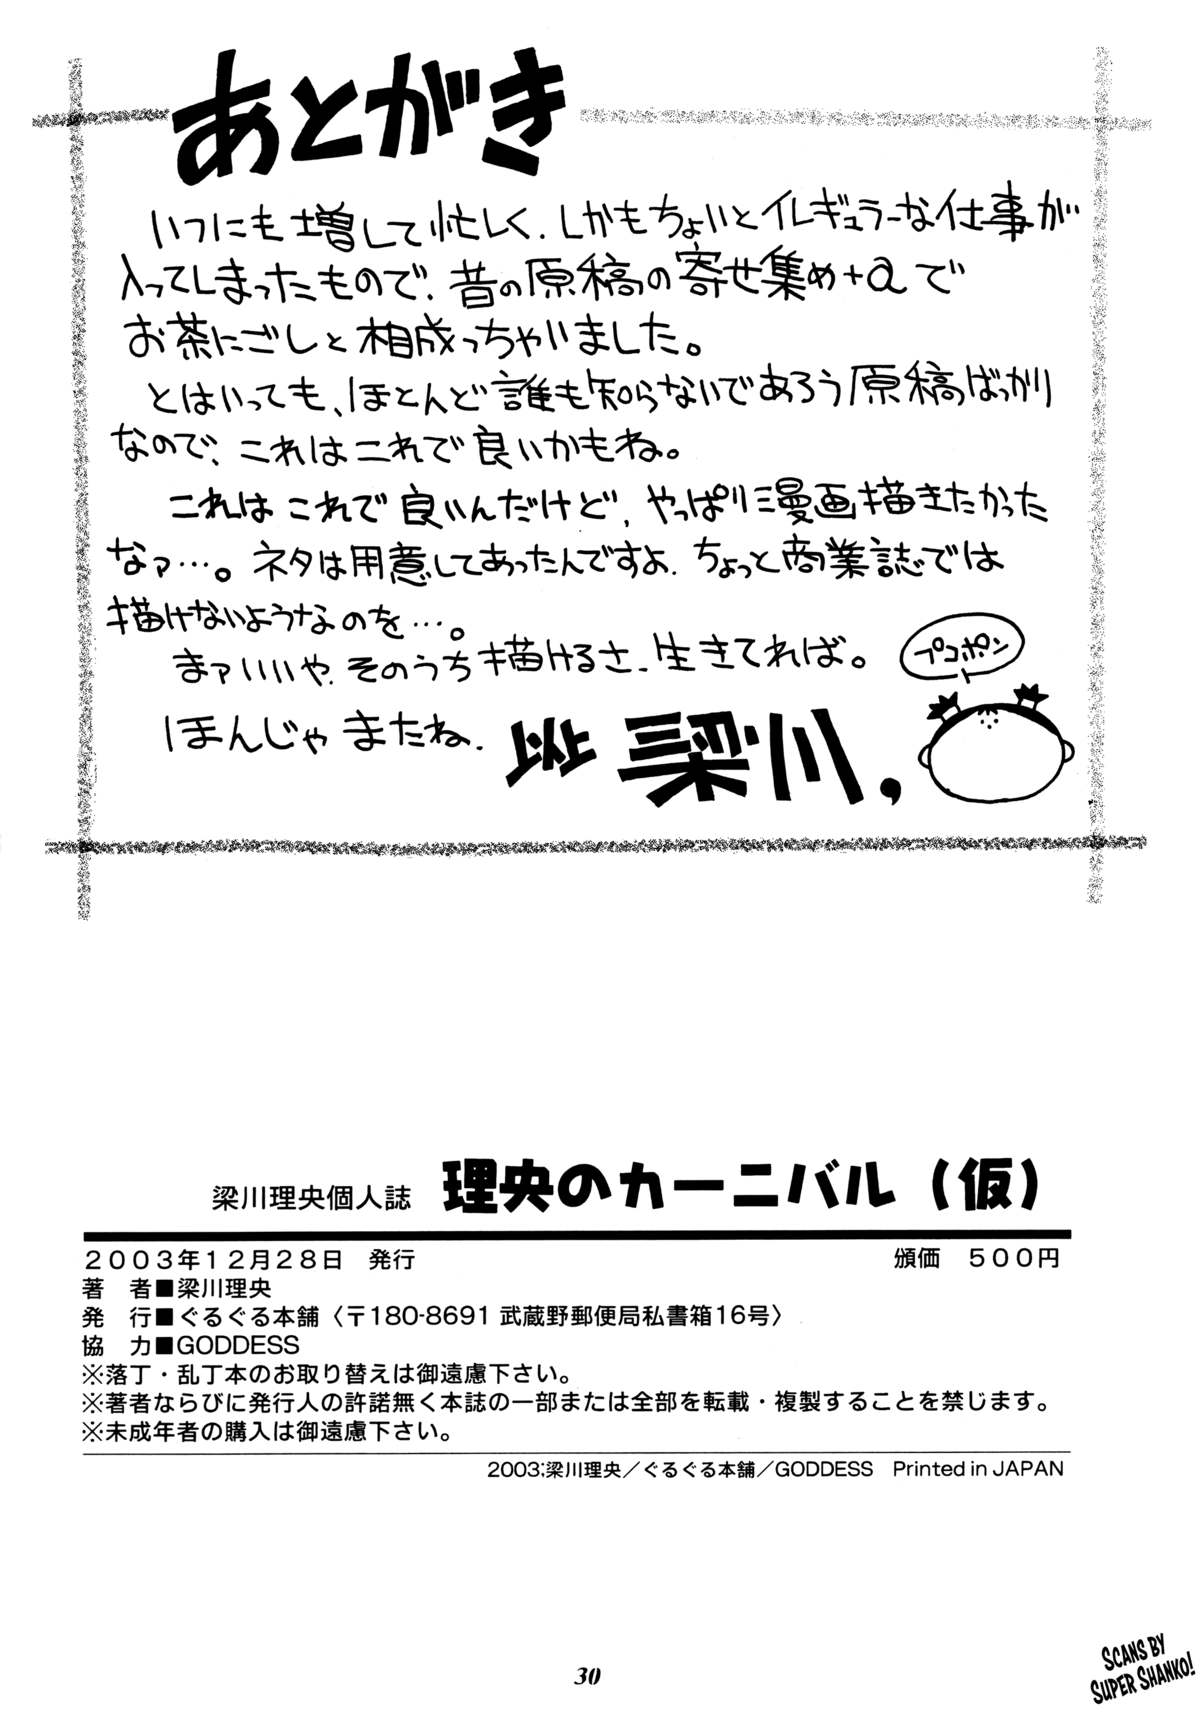 あとがき
いつにも増して忙しく、しかもちょいとイレギュラーな仕事が
入ってしまったもので、昔の原稿の寄せ集め+αで
お茶にごしと相成っちゃいました。
とはいっても、ほとんど誰も知らないであろう原稿ばっかり
なので、これはこれで良いかもね。
これはこれで良いんだけど、やっぱり漫画描きたかった
なァ…。ネタは用意してあったんですよ、ちょっと商業誌では
描けないようなのを…。
まァいいや、そのうち描けるさ、生きてれば。
プコポン
ほんじゃまたね、以上 梁川,
梁川理央個人誌 理央のカーニバル(仮)
2003年12月28日 発行 頒価 500円
著 者■梁川理央
発 行■ぐるぐる本舗〈〒180-8691 武蔵野郵便局私書箱16号〉
協 力■GODDESS
※落丁・乱丁本のお取り替えは御遠慮下さい。
※著者ならびに発行人の許諾無く本誌の一部または全部を転載・複製することを禁じます。
※未成年者の購入は御遠慮下さい。
2003;梁川理央/ぐるぐる本舗/GODDESS Printed in JAPAN
30
SCANS BY
SUPER SHANKO!